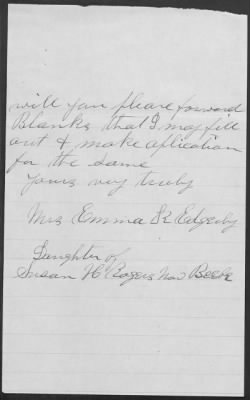 will you please forward
Blanks that I may fill
out & make aplication
for the same
Yours very truly
Mrs Emma
Daughter of
Susan H Rogers Now Beebe